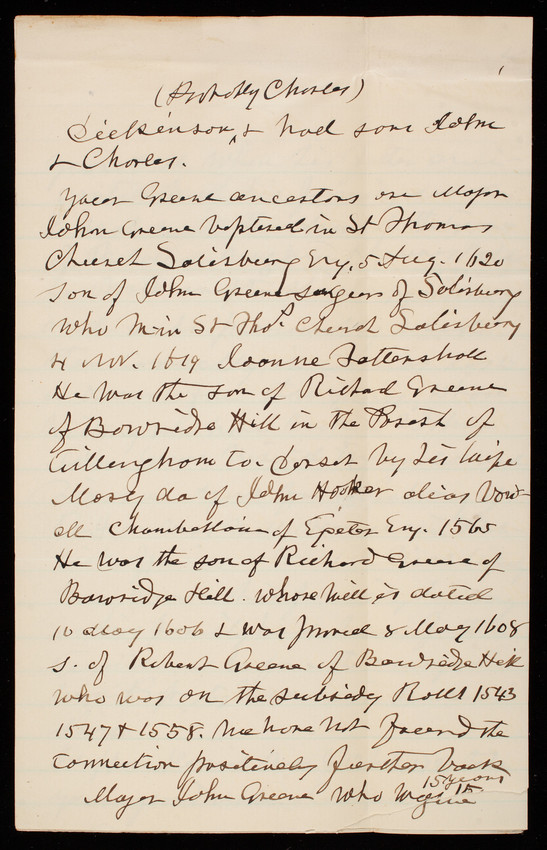 (Probably Charles)
Dickinson, & had sons John
& Charles.
Your Greene ancestors are Major
John Greene baptised in St Thomas
Church Salisbury Eng, 5 Aug. 1620
son of John Greene surgeon of Salisbury
who m in St Thos. Church Salisbury
4 Nov. 1619 Joanne Tattershall
He was the son of Richard Greene
of Bowridge Hill in the Parish of
Gillingham Co. Dorset by his wife
Mary da of John Hooker alias Vow-
ell Chamberlain of Exeter Eng. 1565
He was the son of Richard Greene of
Bowridge Hill. whose will is dated
10 May 1606 & was proved 8 May 1608
s. of Robert Greene of Bowridge Hill
who was on the subsidy Rolls 1543
1547 & 1558. We have not found the
connection positively further back
15 years
Major John Greene who was in